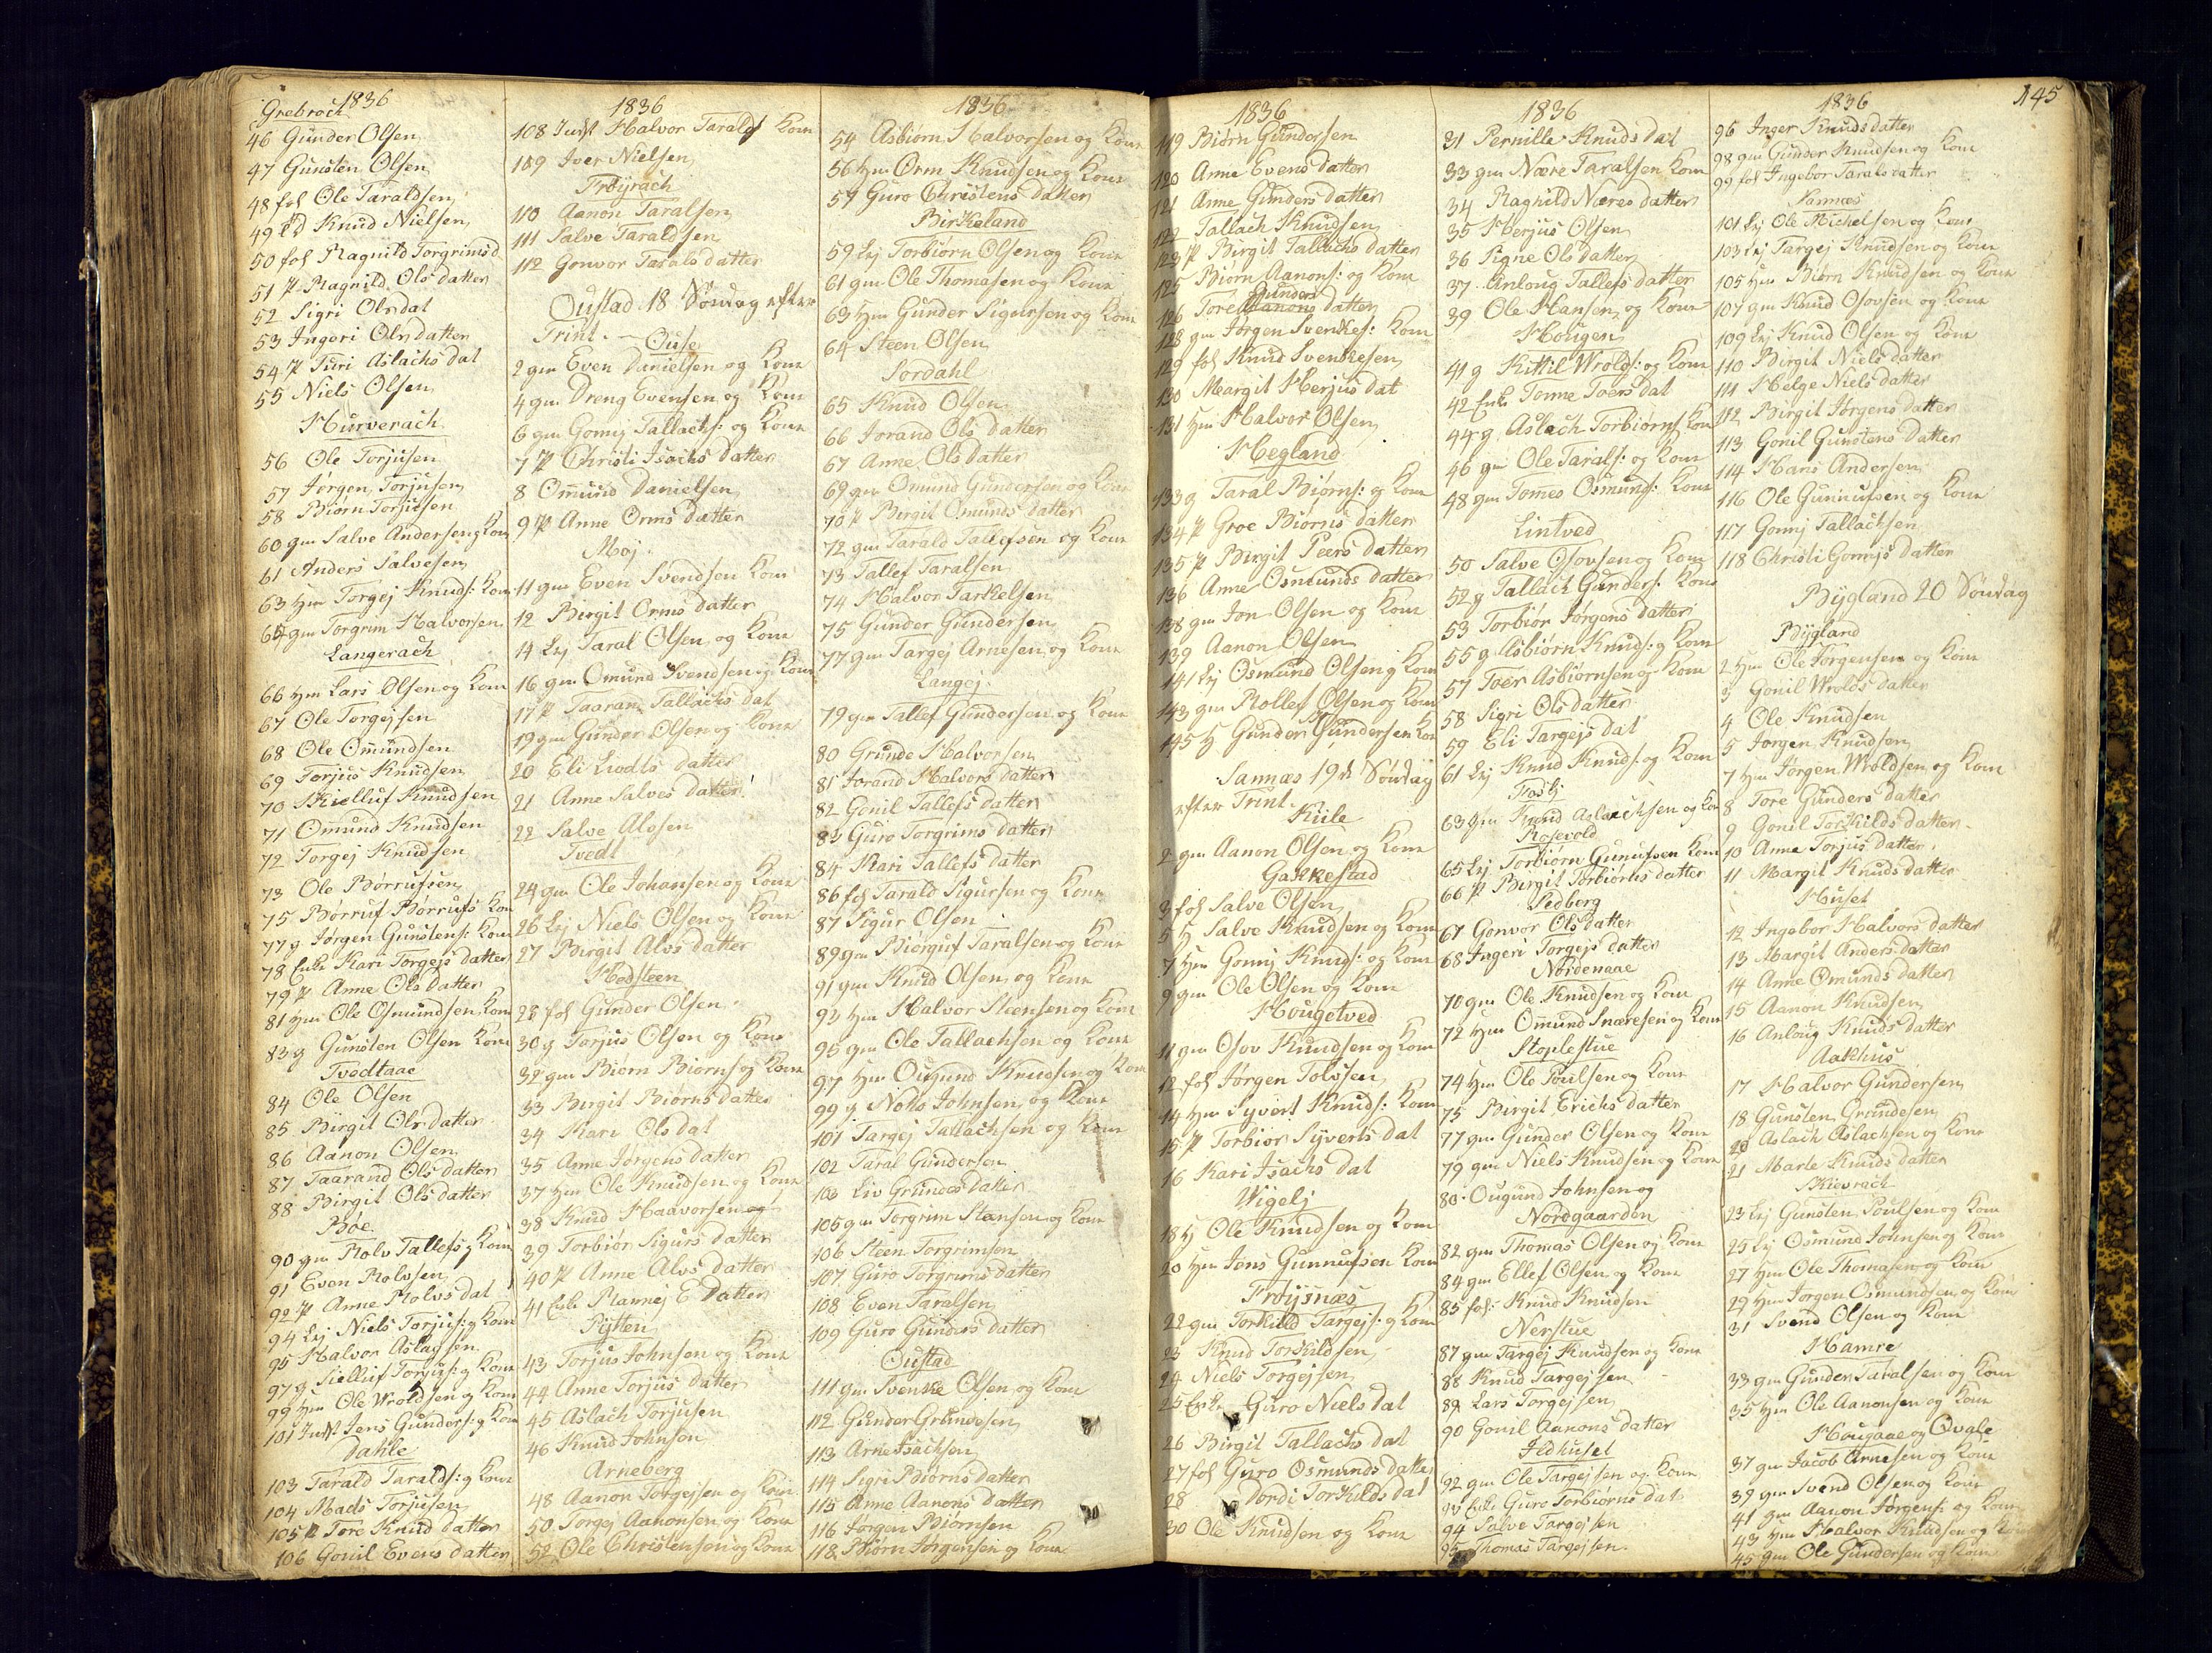 1836
Grebroch
46 Gunder Olsen
47 Gunsten Olsen
48 fol Ole Taraldsen
49 Ld Knud Nielsen
50 fol Ragnild Torgrimsd
51 P Ragnild Ols datter
52 Sigri Olsdat
53 Ingeri Olsdatter
54 P Turi Aslachs dat
55 Niels Olsen
Hurverach
56 Ole Torjusen
57 Jørgen Torjusen
58 Biørn Torjusen
60 gm Salve Andersen g Kone
61 Anders Salvesen
63 Hm Torgej Knuds: Kone
65 gm Torgrim Halvorsen
Langerach
66 Hm Lars Olsen og Kone
67 Ole Torgejsen
68 Ole Omundsen
69 Torjus Knudsen
70 Skielluf Knudsen
71 Omund Knudsen
72 Torgej Knudsen
73 Ole Børrufsen
75 Børruf Børrufs Kon
77 g Jørgen Gunstens: Kone
78 Enke Kari Torgejs datter
79 P Anne Ols datter
81 Hm Ole Osmundsen Kone
83 g Gunsten Olsen Kone
Tvedtaae
84 Ole Olsen
85 Birgit Ols datter
86 Aanon Olsen
87 Taarand Ols datter
88 Birgit Ols datter
Bøe
90 gm Rolv Tallefs g Kone
91 Even Rolvsen
92 P Anne Rolvs dat
94 Lej Niels Torjus: g Kone
95 Halvor Aslagsen
97 g Sielluf Torjus: g Kone
99 Hm Ole Wroldsen g Kone
101 Inds Jens Gunders: g Kone
Dahle
103 Tarald Taralds: g Kone
104 Mads Torjusen
105 P Tore Knud datter
106 Gonil Evens datter
1836
108 Inds Halvor Taralds Kone
109 Iver Nielsen
Frøyrach
110 Aanon Taralsen
111 Salve Taraldsen
112 Gonvor Tarals datter
Oustad 18 Søndag efter
Trint.
Ouse
2 gm Even Danielsen og Kone
4 gm Dreng Evensen og Kone
6 gm Gonnj Tallachs: og Kone
7 P Christi Isachs datter
8 Omund Danielsen
9 P Anne Orms datter
Moj
11 gm Even Svendsen Kone
12 Birgit Orms datter
14 Lej Taral Olsen og Kone
16 gm Omund Svendsen g Kone
17 P Taarand Tallachs dat
19 gm Gunder Olsen og Kone
20 Eli Lvodts datter
21 Anne Salves datter
22 Salve Alvsen
Tvedt
24 gm Ole Johansen og Kone
26 Lej Niels Olsen og Kone
27 Birgit Alvs datter
Hodsteen
28 fol Gunder Olsen
30 g Torjus Olsen og Kone
32 gm Biørn Biørns og Kone
33 Birgit Biørns datter
34 Kari Ols dat
35 Anne Jørgens datter
37 Hm Ole Knudsen og Kone
38 Knud Haavorsen og
39 Torbiør Sigurs datter
40 P Anne Alvs datter
41 Enke Rannej E Datter
Pytten
43 Torjus Johnsen og Kone
44 Anne Torjus datter
45 Aslach Torjusen
46 Knud Johnsen
Arneberg
48 Aanon Torgejsen og Kone
50 Torgej Aanonsen og Kone
52 Ole Christensen og Kone
1836
54 Asbiørn Halvorsen og Kone
56 Hm Orm Knudsen og Kone
57 Guro Christens datter
Birkeland
59 Lej Torbiørn Olsen og Kone
61 gm Ole Thomasen og Kone
63 Hm Gunder Sigursen og Kone
64 Steen Olsen
Sordahl
65 Knud Olsen
66 Jorand Ols datter
67 Anne Ols datter
69 gm Omund Gundersen og Kone
70 P Birgit Omunds datter
72 gm Tarald Tallefsen og Kone
73 Tallef Taralsen
74 Halvor Tarkelsen
75 Gunder Gundersen
77 gm Targej Arnesen og Kone
Langej
79 gm Tallef Gundersen og Kone
80 Grunde Halvorsen
81 Jorand Halvors datter
82 Gonil Tallefs datter
83 Guro Torgrims datter
84 Kari Tallefs datter
86 fol Tarald Sigursen og Kone
87 Sigur Olsen
89 gm Biørguf Taralsen og Kone
91 gm Knud Olsen og Kone
93 Hm Halvor Steensen og Kone
95 gm Ole Tallachsen og Kone
97 Hm Ougund Knudsen og Kone
99 g Notto Johnsen og Kone
101 Targej Tallachsen og Kone
102 Taral Gundersen
103 Liv Grundes datter
105 gm Torgrim Steensen og Kone
106 Steen Torgrimsen
107 Guro Torgrims datter
108 Even Taralsen
109 Guro Gunders datter
Oustad
111 gm Svenke Olsen og Kone
112 Gunder Grundesen
113 Arne Isachsen
114 Sigri Biørns datter
115 Anne Aanons datter
116 Jørgen Biørnsen
118 Biørn Jørgensen g Kone
1836
119 Biørn Gundersen
120 Anne Evens datter
121 Anne Gunders datter
122 Tallach Knudsen
123 P Birgit Tallachs datter
125 Biørn Aanons: og Kone
Gunders
126 Tore Aanons datter
128 gm Jørgen Svenkes: Kone
129 fol Knud Svenkesen
130 Margit Herjus dat
131 Hm Halvor Olsen
Hegland
133 g Taral Biørns: g Kone
134 P Groe Biørns datter
135 P Birgit Peers datter
136 Anne Osmunds datter
138 gm Jon Olsen og Kone
139 Aanon Olsen
141 Lej Osmund Olsen g Kone
143 gm Rollef Olsen og Kone
145 H Gunder Gundersen Kon
Sannæs 19de Søndag
efter Trint.
Kiile
2 gm Aanon Olsen og Kone
Gakkestad
3 fol Salve Olsen
5 H Salve Knudsen og Kone
7 Hm Gonnj Knuds: og Kone
9 gm Ole Olsen og Kone
Hougetved
11 gm Osov Knudsen og Kone
12 fol Jørgen Tolvsen
14 Hm Syvert Knuds: Kone
15 P Torbiør Syverts dat
16 Kari Isachs dat
Wigelj
18 H Ole Knudsen og Kone
20 Hm Jens Gunnufsen Kone
Frøysnæs
22 gm Torkild Targejs: g Kone
23 Knud Torkildsen
24 Niels Torgejsen
25 Enke Guro Niels dat
26 Birgit Tallachs dat
27 fol Guro Osmunds datter
28 Dordi Torkilds dat
30 Ole Knudsen og Kone
1836
31 Pernille Knuds dat
33 gm Nære Taralsen Kone
34 Ragnild Næres datter
35 Herjus Olsen
36 Signe Ols datter
37 Anloug Tallefs datter
39 Ole Hansen og Kone
Hougen
41 g Kittil Wrolds: og Kone
42 Enke Tonne Toers dat
44 g Aslach Torbiørns Kon
46 gm Ole Tarals: og Kone
48 gm Tomes Osmunds: Kone
Lintved
50 Salve Osovsen og Kone
52 g Tallach Gunders: Kone
53 Torbiør Jørgens datter
55 g Asbiørn Knuds: g Kone
57 Toer Asbiørnsen og Kone
58 Sigri Ols datter
59 Eli Targejs dat
61 Lej Knud Knuds: og Kone
63 gm Knud Aslachsen og Kon
Rosevold
65 Lej Torbiørn Gunufsen Kone
66 P Birgit Torbiørns datter
Sedberg
67 Gonvor Ols datter
68 Ingeri Torgejs datter
Nordenaae
70 gm Ole Knudsen og Kone
72 Hm Omund Snæresen og Kone
Stoplestue
74 Hm Ole Poulsen og Kone
75 Birgit Erichs datter
77 gm Gunder Olsen og Kone
79 gm Niels Knudsen og Kone
80 Ougund Johnsen og
Nordgaarden
82 gm Thomas Olsen og Kone
84 gm Ellef Olsen og Kone
85 fol: Knud Knudsen
Nerstue
87 gm Targej Knudsen og Kone
88 Knud Targejsen
89 Lars Torgejsen
90 Gonil Aanons datter
Ildhuset
92 gm Ole Targejsen og Kone
93 Enke Guro Torbiørns dat
94 Salve Targejsen
95 Thomas Targejsen
1836
145
96 Inger Knuds datter
98 gm Gunder Knudsen og Kone
99 fol Ingebor Tarals datter
Sannæs
101 Lej Ole Michelsen og Kone
103 Lej Targej Knudsen og Kone
105 Hm Biørn Knudsen og Kone
107 gm Knud Osovsen og Kone
109 Lej Knud Olsen og Kone
110 Birgit Niels datter
111 Helge Niels datter
112 Birgit Jørgens datter
113 Gonil Gunstens datter
114 Hans Andersen
116 Ole Gunnufsen og Kone
117 Gonnj Tallachsen
118 Christi Gonnjs datter
Bygland 20 Søndag
Bygland
2 Hm Ole Jørgensen og Kone
3 Gonil Wrolds datter
4 Ole Knudsen
5 Jørgen Knudsen
7 Hm Jørgen Wroldsen og Kone
8 Tore Gunders datter
9 Gonil Torkilds datter
10 Anne Torjus datter
11 Margit Knuds datter
Huset
12 Ingebor Halvors datter
13 Margit Anders datter
14 Anne Omunds datter
15 Aanon Knudsen
16 Anloug Knuds datter
Aakhus
17 Halvor Gundersen
18 Gunsten Grundesen
20 Aslach Aslachsen og Kone
21 Marte Knuds datter
Skievrach
23 Lej Gunsten Poulsen og Kone
25 Lej Osmund Johnsen og Kone
27 Hm Ole Thomasen og Kone
29 Hm Jørgen Osmundsen og Kone
31 Svend Olsen og Kone
Hamre
33 gm Gunder Taralsen og Kone
35 Hm Ole Aanonsen og Kone
Hougaae og Ovale
37 gm Jacob Arnesen og Kone
39 gm Svend Olsen og Kone
41 gm Aanon Jørgens: og Kone
43 Hm Halvor Knudsen og Kone
45 gm Ole Gundersen og Kone